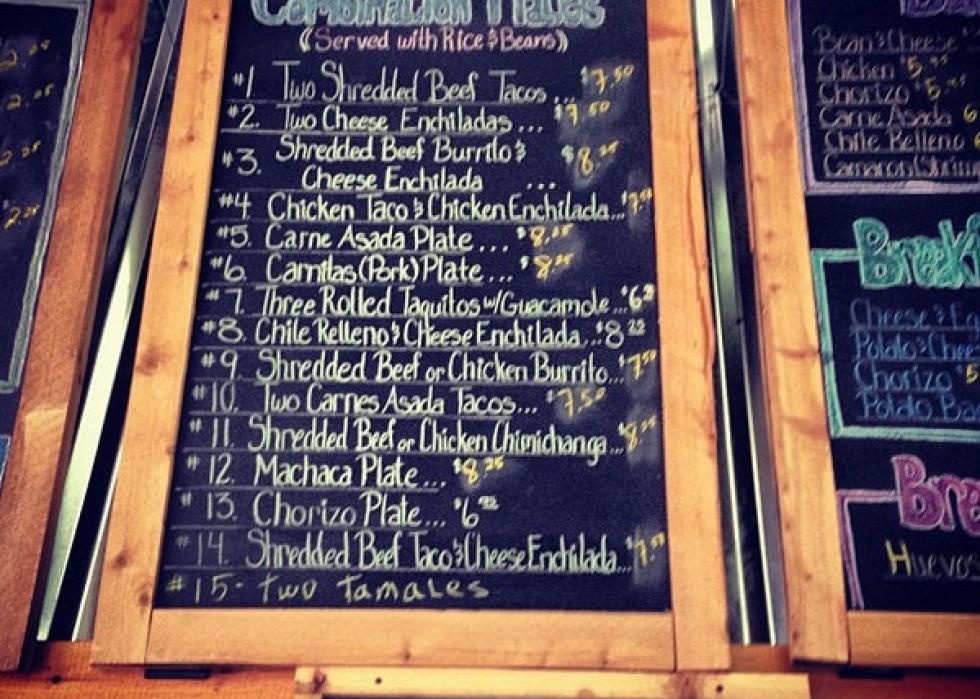 2.25
2.25
2.25
Combination Plates
(Served with Rice & Beans)
#1. Two Shredded Beef Tacos... $7.50
#2. Two Cheese Enchiladas... $7.50
#3. Shredded Beef Burrito & $8.25
Cheese Enchilada ...
#4. Chicken Taco & Chicken Enchilada... $7.50
#5. Carne Asada Plate... $8.25
#6. Carnitas (Pork) Plate... $8.25
#7. Three Rolled Taquitos w/Guacamole...
#8. Chile Relleno & Cheese Enchilada...
#9. Shredded Beef or Chicken Burrito... $7.50
#10. Two Carnes Asada Tacos... $7.50
#11. Shredded Beef or Chicken Chimichanga... $8.25
#12. Machaca Plate... $8.25
#13. Chorizo Plate...
#14. Shredded Beef Taco & Cheese Enchilada... $7.50
#15- Two Tamales
Bean & Cheese
Chicken
Chorizo
Carne Asada
Chile Relleno
Camaron (Shrim
Breakf
Cheese & E
Potato & Chees
Chorizo
Potato Ba
Bre
Huevos